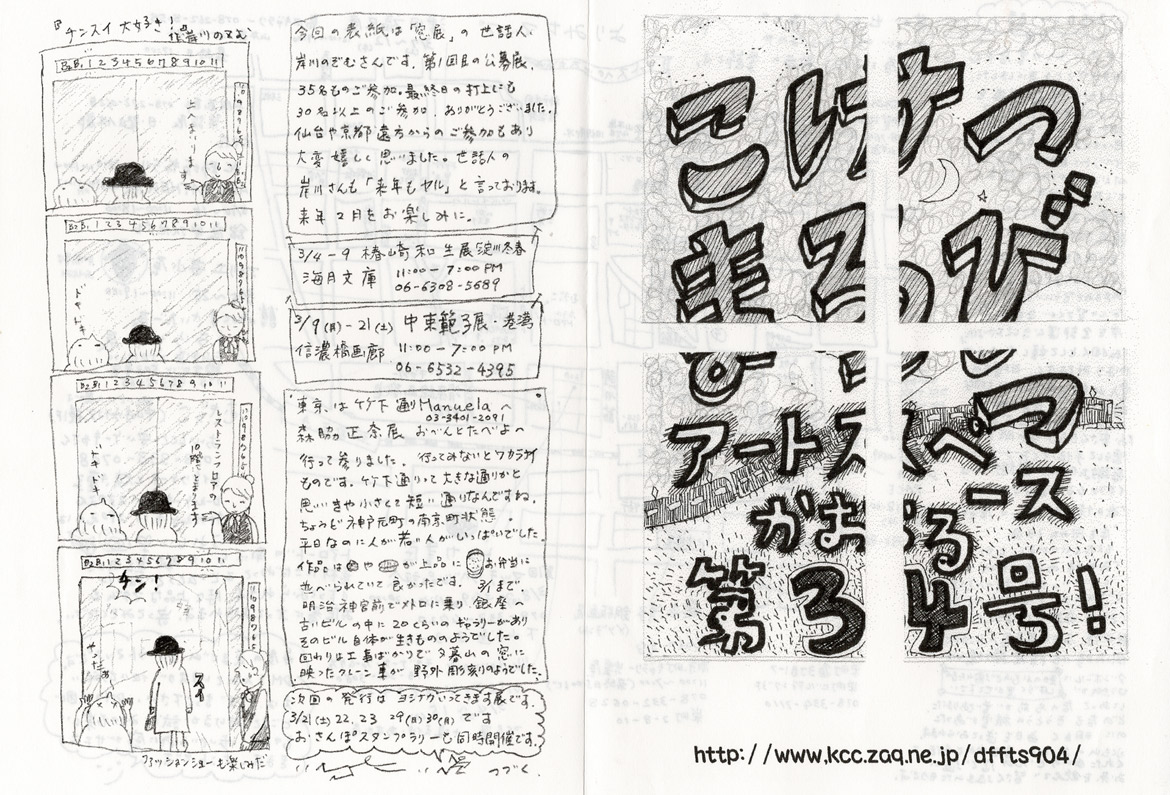 『チンスイ 大好き』
作 岸川のぞむ
B2 B1 1 2 3 4 5 6 7 8 9 10 11
上へまいります
B2 B1 1 2 3 4 5 6 7 8 9 10 11
ドキドキ
B2 B1 1 2 3 4 5 6 7 8 9 10 11
ドキドキ
レストランフロアの
10階で止まります
B2 B1 1 2 3 4 5 6 7 8 9 10 11
チン!
スイ
ファッションショーも楽しみだ
今回の表紙は「窓展」の世話人、
岸川のぞむさんです。第1回目の公募展、
35名ものご参加。最終日の打上にも
30名以上のご参加、ありがとうございました。
仙台や京都遠方からのご参加もあり
大変嬉しく思いました。世話人の
岸川さんも「来年もヤル」と言っております。
来年2月をお楽しみに。
3/4-9 椿崎和生展 淀川冬春
海月文庫 11:00-7:00PM
06-6308-5689
3/9(月)-21(土) 中東範子展・港湾
信濃橋画廊 11:00-7:00PM
06-6532-4395
東京は竹下通りManuelaへ
03-3401-2091
森脇正奈展 おべんとたべよへ
行って参りました。行ってみないとワカラナイ
ものです。竹下通りって大きな通りかと
思いきや小さくて短い通りなんですね。
ちょうど神戸元町の南京町状態。
平日なのに人が若い人がいっぱいでした
作品は や が上品に お弁当に
並べられていて良かったです。3/1まで
明治神宮前でメトロに乗り銀座へ
古いビルの中に20くらいのギャラリーがあり
そのビル自体が生きもののようでした。
回わりは工事ばかりで夕暮山の窓に
映ったクレーン車が野外彫刻のようでした。
次回の発行はヨシダがいってきます展です。
3/21(土)22、23、29(日)30(月)です
おさんぽスタンプラリーも同時開催です。
つづく
こけつ
まろび
つ
アートスペース
かおる
第34号!
http://www.kcc.zaq.ne.jp/dffts904/